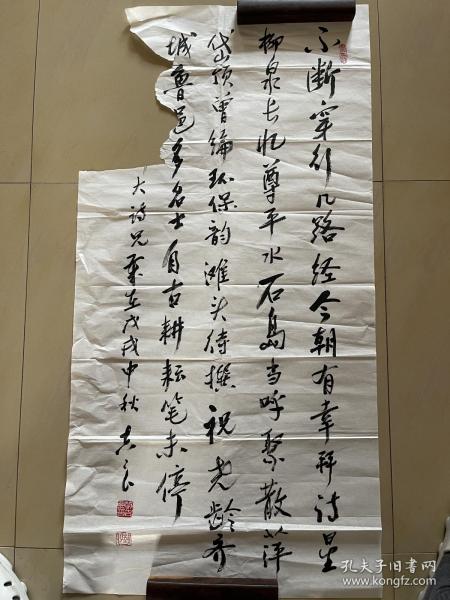 不断穿行几路经今朝有幸拜诗星
柳泉长忆尊平水石岛当呼聚散萍
岱顶曾编环保韵滩头待撰祝尧龄齐
城鲁邑多名士自古耕耘笔未停
大诗兄 在戊戌中秋 志良
孔夫子旧书网
www.kongfz.com